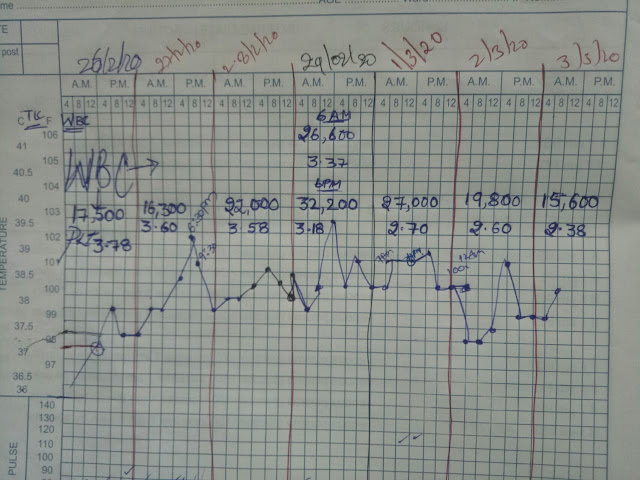 TE
post
26/2/20 27/2/20 28/2/20 29/02/20 1/3/20 2/3/20 3/3/20
A.M. P.M. A.M. P.M. A.M. P.M. A.M. P.M. A.M. P.M. A.M. P.M. A.M. P.M.
4 8 12 4 8 12 4 8 12 4 8 12 4 8 12 4 8 12 4 8 12 4 8 12 4 8 12 4 8 12 4 8 12 4 8 12 4 8 12 4 8 12
C TLC F WBC 6 AM
106 26,600
41
105 WBC → 3.37
40.5
104 6PM
40 17,500 16,300 22,000 32,200 27,000 19,800 15,600
103
39.5 PLT 3.78 3.60 3.58 3.18 2.70 2.60 2.38
102 6:30pm
39
101
38.5
100
38
99
37.5
98
37
97
36.5
36
TEMPERATURE
140
130
120
110
100
90
80
PULSE